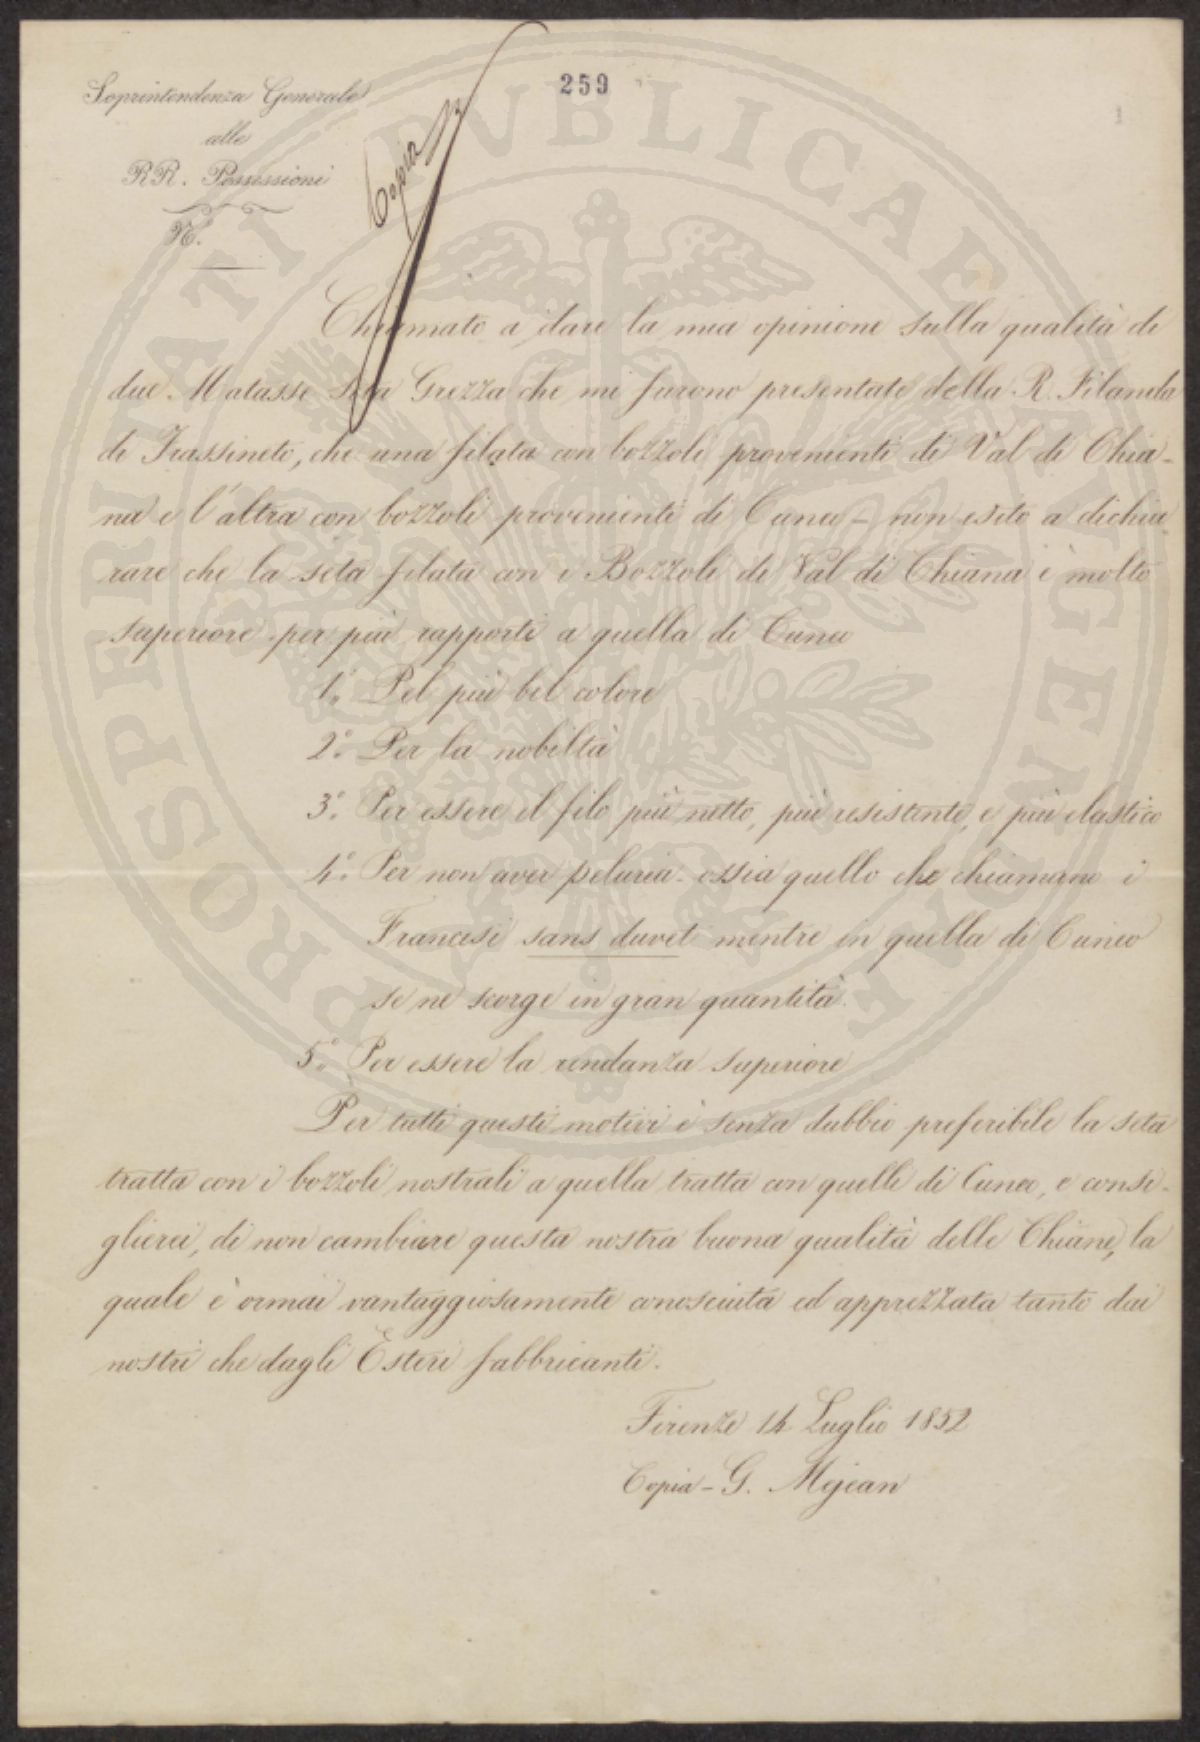 259
1
Soprintendenza Generale
alle
RR. Possessioni
N.
Copia
Chiamato a dare la mia opinione sulla qualità di
due Matasse seta Grezza che mi furono presentate della R. Filanda
di Frassineto, che una filata con bozzoli provenienti di Val di Chia-
na e l'altra con bozzoli provenienti di Cuneo – non esito a dichia
rare che la seta filata con i Bozzoli di Val di Chiana è molto
superiore per più rapporti a quella di Cuneo
1.° Pel più bel colore
2.° Per la nobiltà
3.° Per essere il filo più netto, più resistente, e più elastico
4.° Per non aver peluria ossia quello che chiamano i
Francesi sans duvet mentre in quella di Cuneo
se ne scorge in gran quantità.
5.° Per essere la rendanza superiore
Per tutti questi motivi è senza dubbio preferibile la seta
tratta con i bozzoli nostrali a quella tratta con quelli di Cuneo, e consi-
glierei, di non cambiare questa nostra buona qualità delle Chiane, la
quale è ormai vantaggiosamente conosciuta ed apprezzata tanto dai
nostri che dagli Esteri fabbricanti.
Firenze 14 Luglio 1852
Copia – G. Mejean
PROSPERITATI PUBLICAE AUGENDAE